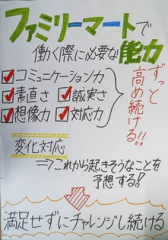 ファミリーマートで
働く際に必要な能力
☑コミュニケーション力
☑素直さ ☑誠実さ
☑想像力 ☑対応力
ずっと高め続ける!!
変化対応
⇒これから起きそうなことを
予想する!?
満足せずにチャレンジし続ける